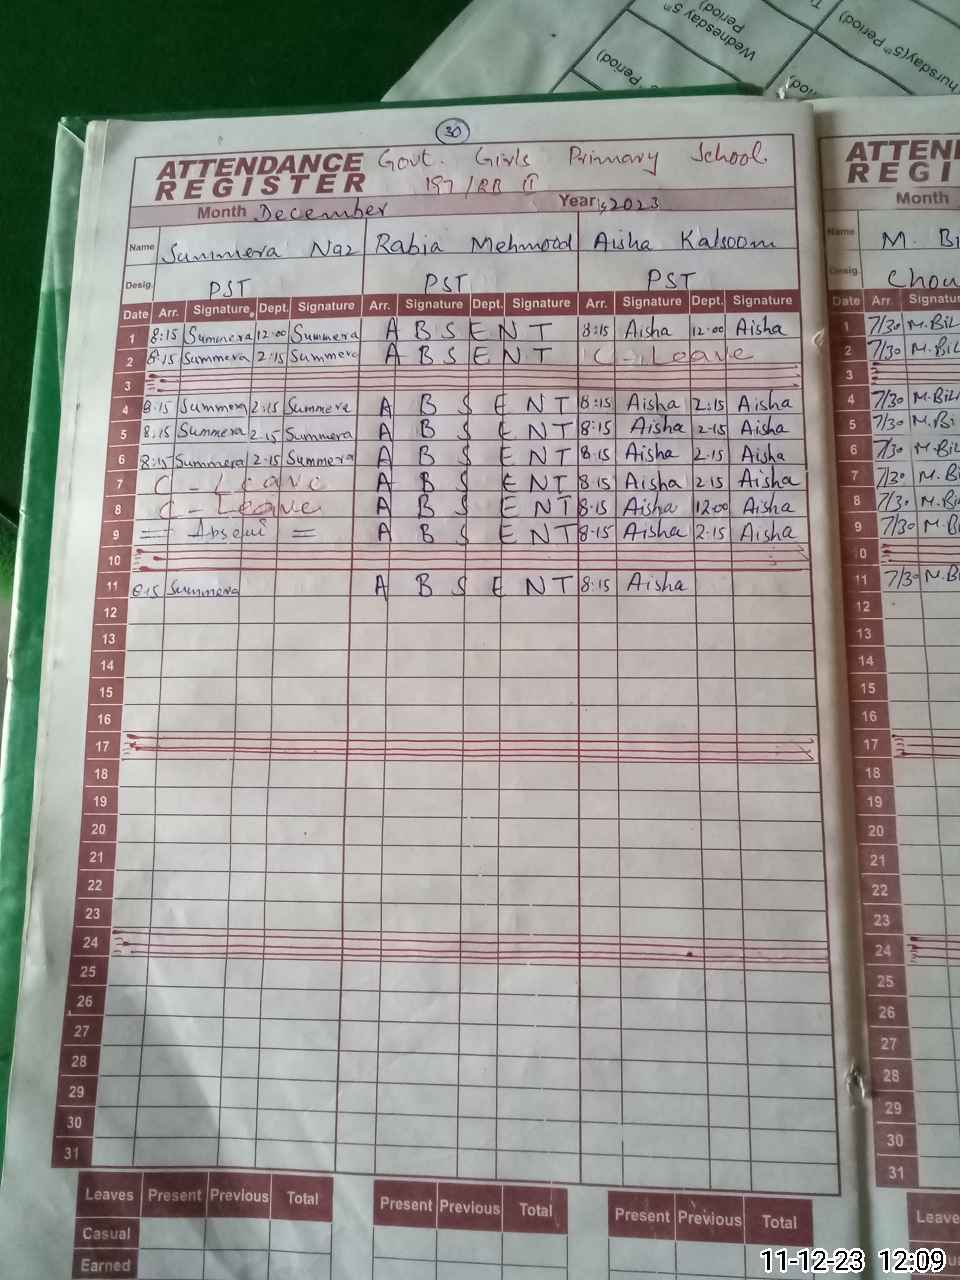 Wednesday 5th Period)
Thursday(5th Period)
Period)
30
ATTENDANCE REGISTER Govt. Girls Primary School
197/RB II
Month December Year 2023
Name Summera Naz Rabia Mehmood Aisha Kalsoom
Desig. PST PST PST
Date Arr. Signature Dept. Signature Arr. Signature Dept. Signature Arr. Signature Dept. Signature
1 8:15 Summera 12:00 Summera ABSENT 8:15 Aisha 12:00 Aisha
2 8:15 Summera 2:15 Summera ABSENT C-Leave
3
4 8:15 Summera 2:15 Summera ABSENT 8:15 Aisha 2:15 Aisha
5 8:15 Summera 2:15 Summera ABSENT 8:15 Aisha 2:15 Aisha
6 8:15 Summera 2:15 Summera ABSENT 8:15 Aisha 2:15 Aisha
7 C-Leave ABSENT 8:15 Aisha 2:15 Aisha
8 C-Leave ABSENT 8:15 Aisha 12:00 Aisha
9 = Absent = ABSENT 8:15 Aisha 2:15 Aisha
10
11 8:15 Summera ABSENT 8:15 Aisha
12
13
14
15
16
17
18
19
20
21
22
23
24
25
26
27
28
29
30
31
Leaves Present Previous Total Present Previous Total Present Previous Total
Casual
Earned
ATTEN
REGI
Month
Name M. Bi
Desig. Chou
Date Arr. Signatu
1 7/30 M.Bil
2 7/30 M.Bil
3
4 7/30 M.Bil
5 7/30 M.Bi
6 7/30 M.Bil
7 7/30 M.Bil
8 7/30 M.Bil
9 7/30 M.B
10
11 7/30 M.Bi
12
13
14
15
16
17
18
19
20
21
22
23
24
25
26
27
28
29
30
31
Leave
11-12-23 12:09